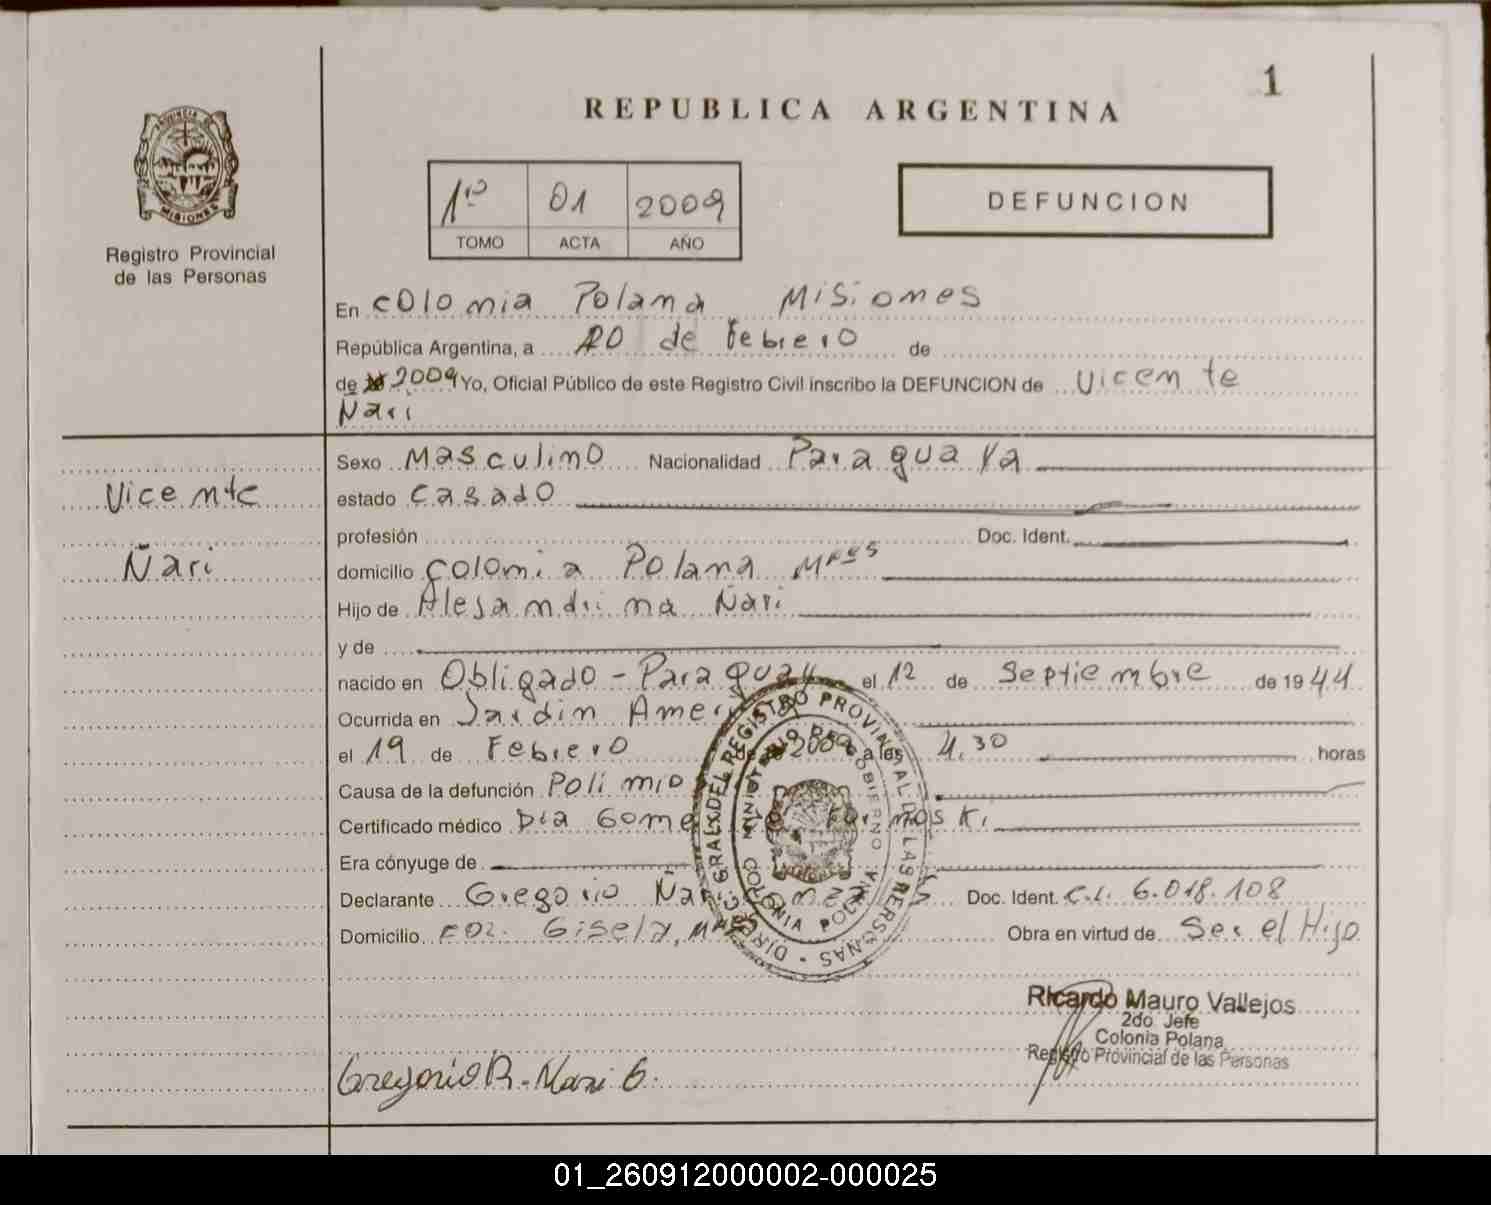 1
REPUBLICA ARGENTINA
PROVINCIA DE
MISIONES
Registro Provincial
de las Personas
1º 01 2009
TOMO ACTA AÑO
DEFUNCION
En Colonia Polana Misiones
República Argentina, a 20 de Febrero de
de 2009 Yo, Oficial Público de este Registro Civil inscribo la DEFUNCION de Vicente
Ñari
Vicente
Ñari
Sexo Masculino Nacionalidad Paraguaya
estado Casado
profesión Doc. Ident.
domicilio Colonia Polana Mnes
Hijo de Alejandrina Ñari
y de
nacido en Obligado - Paraguay el 12 de Septiembre de 1944
Ocurrida en Jardin
el 19 de Febrero de 2009 a las 4,30 horas
Causa de la defunción
Certificado médico Dra
Era cónyuge de
Declarante Gregorio Doc. Ident. C.I. 6.018.108
Domicilio Gisela, Obra en virtud de Ser el Hijo
DIREC. GRAL. DEL REGISTRO PROVINCIAL DE LAS PERSONAS
MINISTERIO DE GOBIERNO
COLONIA POLANA
Ricardo Mauro Vallejos
2do Jefe
Colonia Polana
Registro Provincial de las Personas
Gregorio R. Ñari G.
01_260912000002-000025